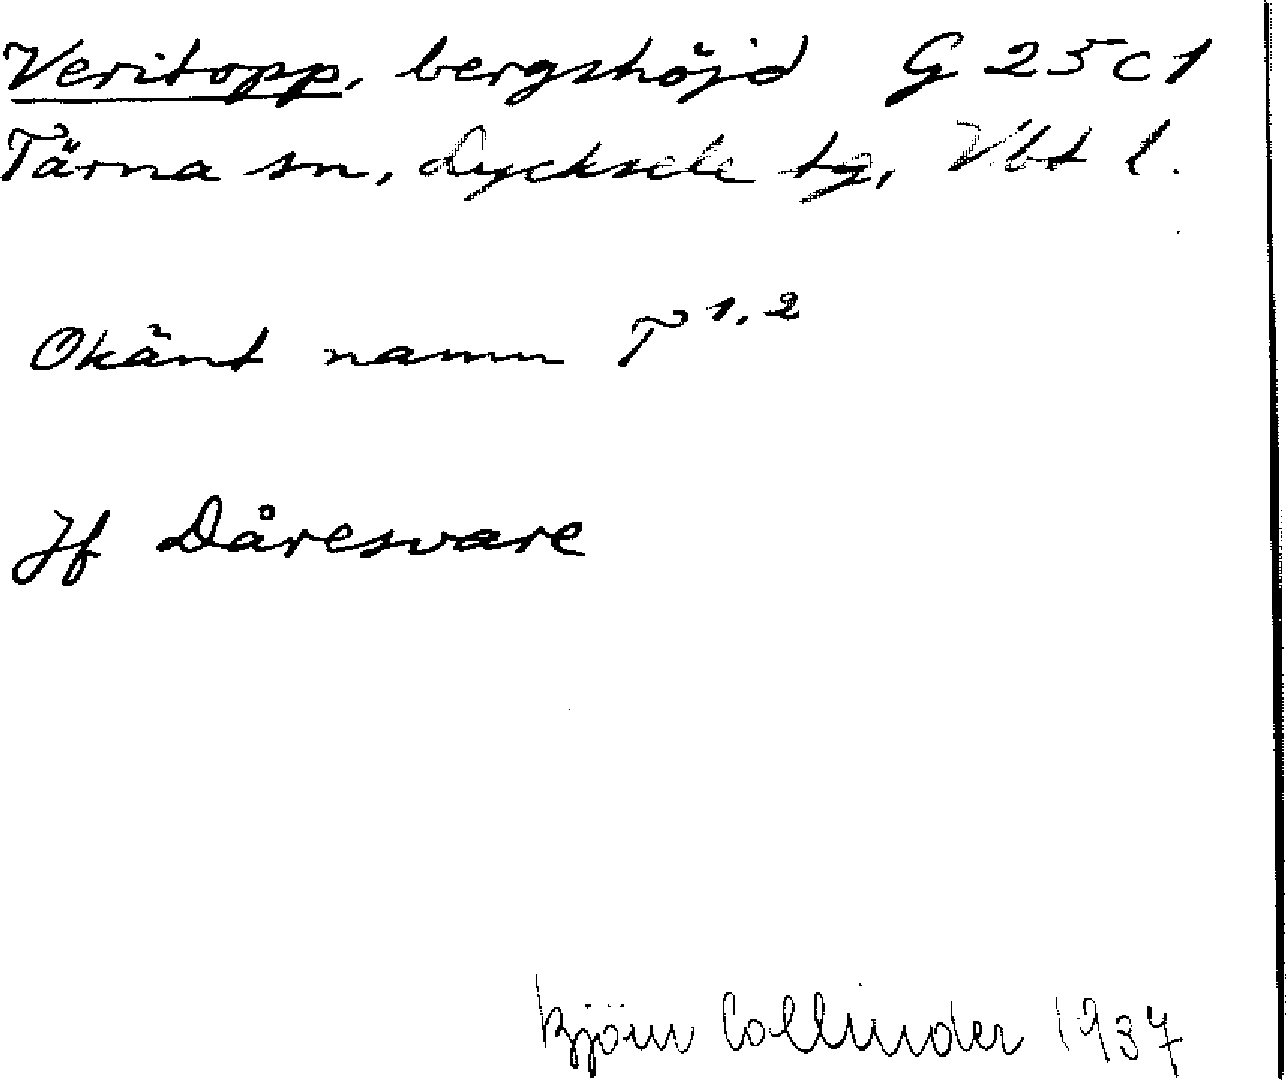 Veritopp, bergshöjd G 25 c 1
Tärna sn, Lycksele tg, Vbt l.
Okänt namn T 1, 2
Jf Dåresvare
Björn Collinder 1937